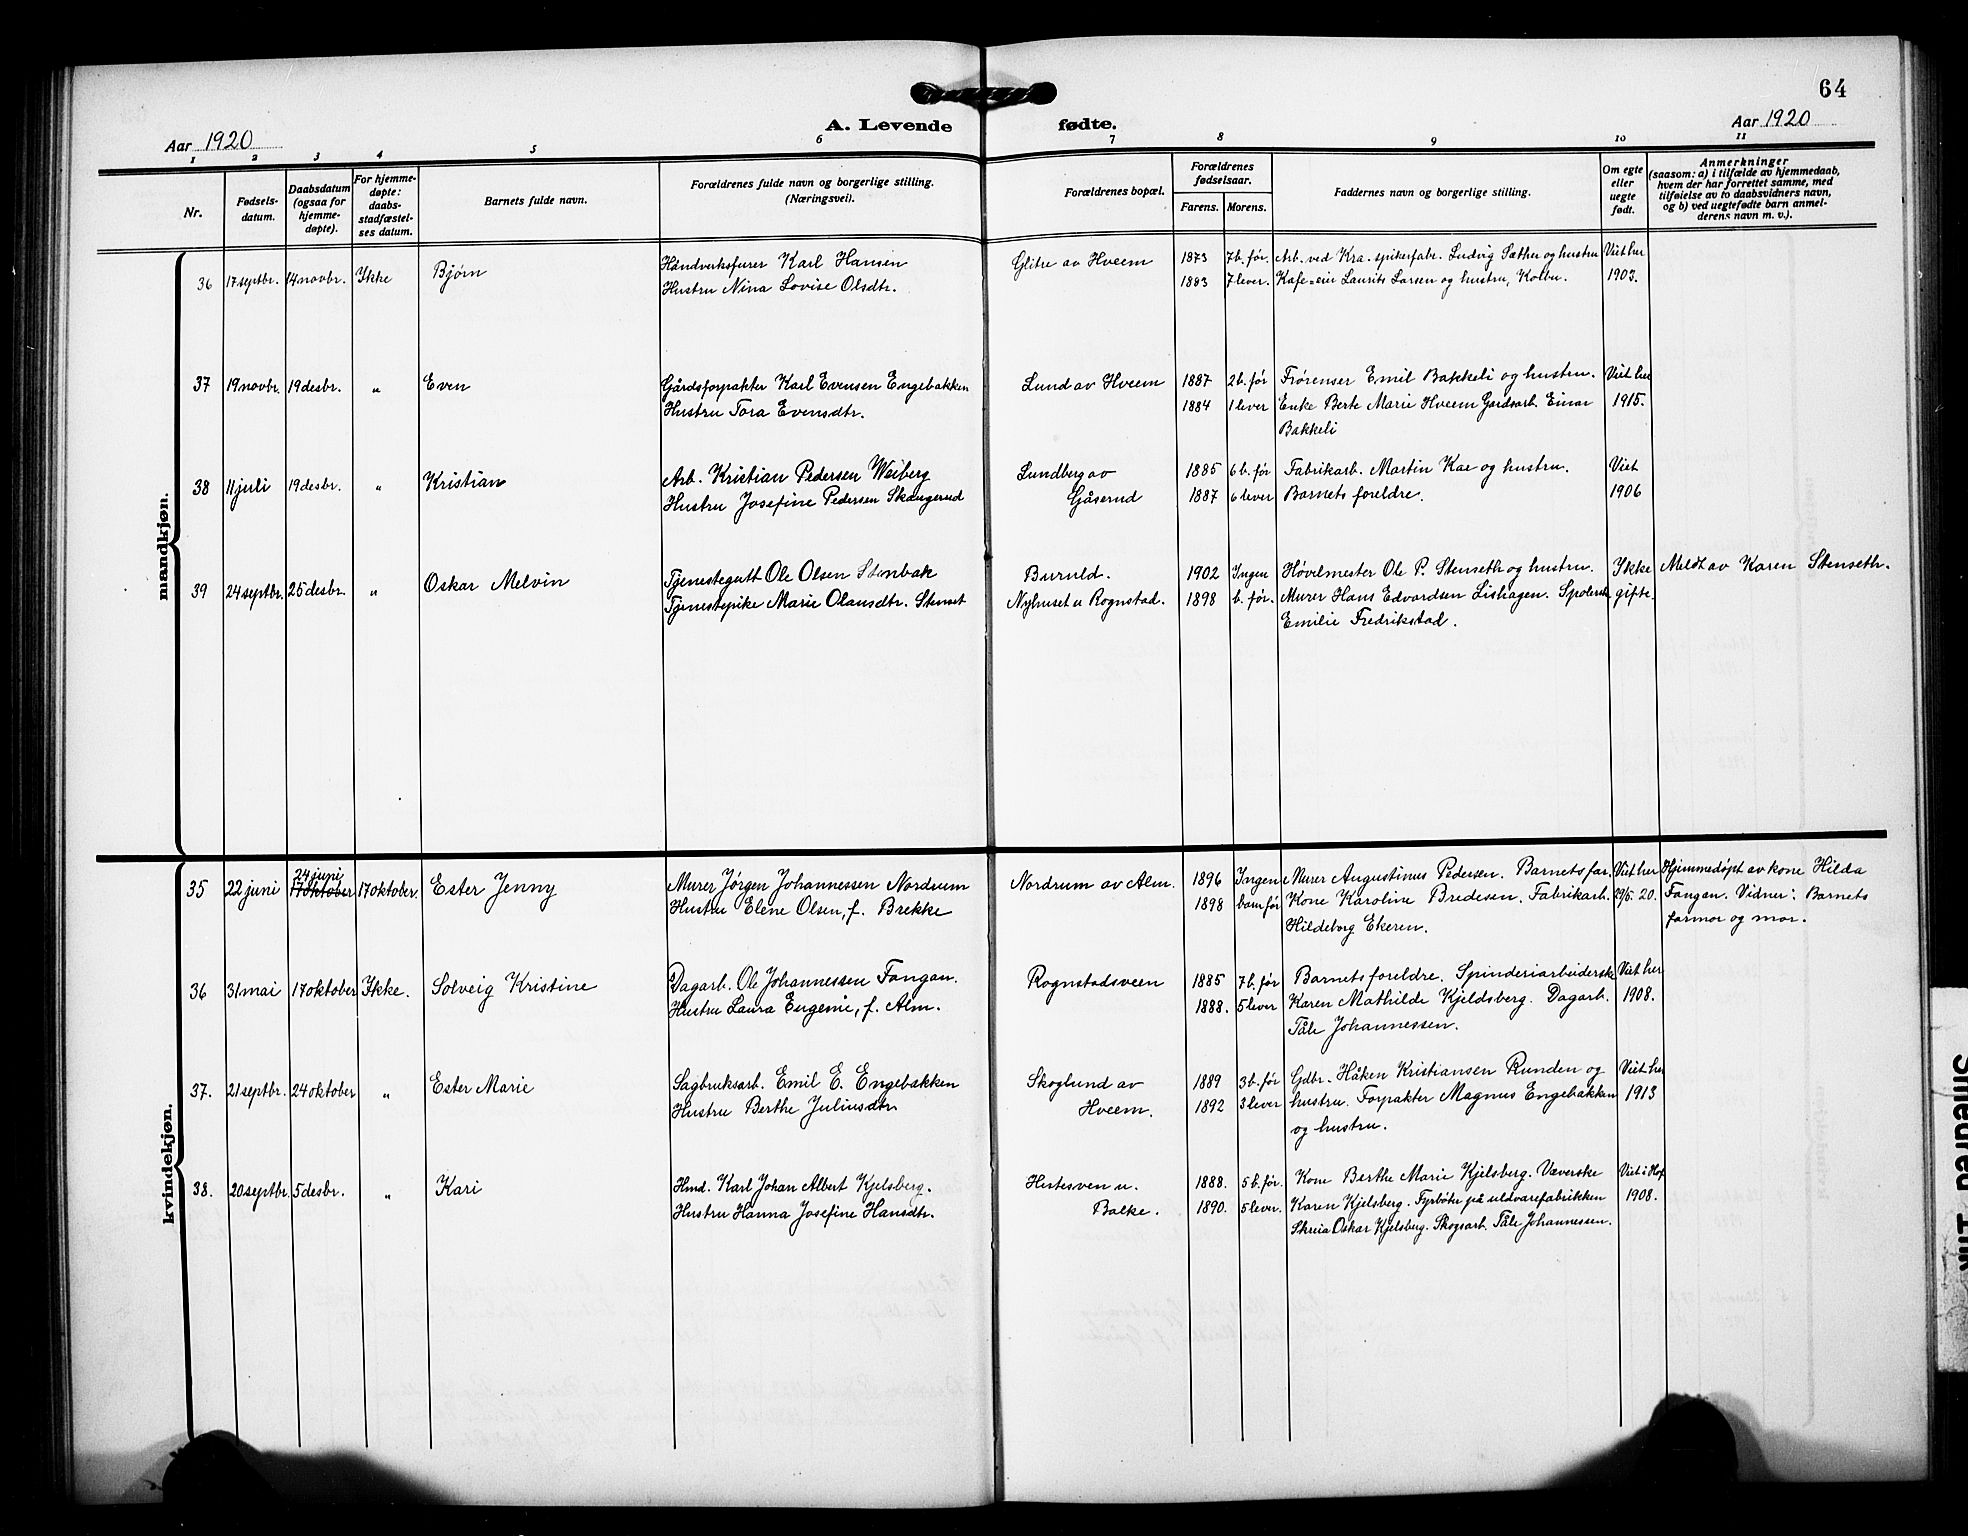 64
A. Levende fødte.
Aar 1920
Aar 1920
1 2 3 4 5 6 7 8 9 10 11
Nr.
Fødsels-
datum.
Daabsdatum
(ogsaa for
hjemme-
døpte).
For hjemme-
døpte:
daabs-
stadfæstel-
ses datum.
Barnets fulde navn.
Forældrenes fulde navn og borgerlige stilling.
(Næringsvei).
Forældrenes bopæl.
Forældrenes
fødselsaar.
Farens. Morens.
Faddernes navn og borgerlige stilling.
Om egte
eller
uegte
født.
Anmerkninger
(saasom: a) i tilfælde av hjemmedaab,
hvem der har forrettet samme, med
tilføielse av to daabsvidners navn,
og b) ved uegtefødte barn anmel-
derens navn m. v.).
mandkjøn.
36 17 septbr. 14 novbr. Ikke Bjørn
Håndverksfurer Karl Hansen
Hustru Nina Lovise Olsdtr.
Glitre av Hveem
1873 7 b. før.
1883 7 lever.
Arb. ved Kra. spikerfabr. Ludvig Sæther og hustru
Kafe-eier Laurits Larsen og hustru, Kolbu.
Viet her
1903.
37 19 novbr. 19 desbr. " Even
Gårdsforpakter Karl Evensen Engebakken
Hustru Tora Evensdtr.
Lund av Hveem
1887 2 b. før
1884 1 lever
Frørenser Emil Bakkeli og hustru.
Enke Berte Marie Hveem Gardsarb. Einar
Bakkeli
Viet her
1915.
38 11 juli 19 desbr. " Kristian
Arb. Kristian Pedersen Weiberg
Hustru Josefine Pedersen Skaugerud
Lundberg av
Gåserud
1885 6 b. før
1887 6 lever
Fabrikarb. Martin Kae og hustru.
Barnets foreldre.
Viet
1906
39 24 septbr. 25 desbr. " Oskar Melvin
Tjenestegutt Ole Olsen Stenbak
Tjenestepike Marie Olausdtr. Stenset
Buruld.
Nyhuset u Rognstad.
1902 Ingen
1898 b. før.
Høvelmester Ole P. Stenseth og hustru.
Murer Hans Edvardsen Lishagen. Spolersk
Emilie Fredrikstad.
Ikke
gifte.
Meldt av Karen Stenseth.
kvindekjøn.
35 22 juni 24 juni 17 oktober 17 oktober. Ester Jenny
Murer Jørgen Johannessen Nordrum
Hustru Elene Olsen, f. Brekke
Nordrum av Alm.
1896 Ingen
1898 barn før
Murer Augustinus Pedersen. Barnets far.
Kone Karoline Bredesen. Fabrikarb.
Hildeborg Ekeren.
Viet her
29/5. 20.
Hjemmedøpt av kone Hilda
Fangan. Vidner: Barnets
farmor og mor.
36 31 mai 17 oktober Ikke. Solveig Kristine
Dagarb. Ole Johannessen Fangan.
Hustru Laura Eugenie, f. Alm.
Rognstadsveen
1885 7 b. før
1888. 5 lever
Barnets foreldre. Spinderiarbeiderske
Karen Mathilde Kjeldsberg. Dagarb.
Tåle Johannessen.
Viet her
1908.
37. 21 septbr. 24 oktober " Ester Marie
Sagbruksarb. Emil E. Engebakken
Hustru Berthe Juliusdtr
Skoglund av
Hveem.
1889 3 b. før
1892 3 lever
Gdbr. Håken Kristiansen Runden og
hustru. Forpakter Magnus Engebakken
og hustru.
Viet her
1913
38. 20 septbr. 5 desbr. " Kari
Hmd. Karl Johan Albert Kjelsberg.
Hustru Hanna Josefine Hansdtr.
Hestesven u.
Balke.
1888. 5 b. før.
1890. 5 lever.
Kone Berthe Marie Kjelsberg. Væverske
Karen Kjelsberg. Fyrbøter på uldvarefabrikken
Skreia Oskar Kjelsberg. Skogsarb. Tåle Johannessen.
Viet i Hof
1908.